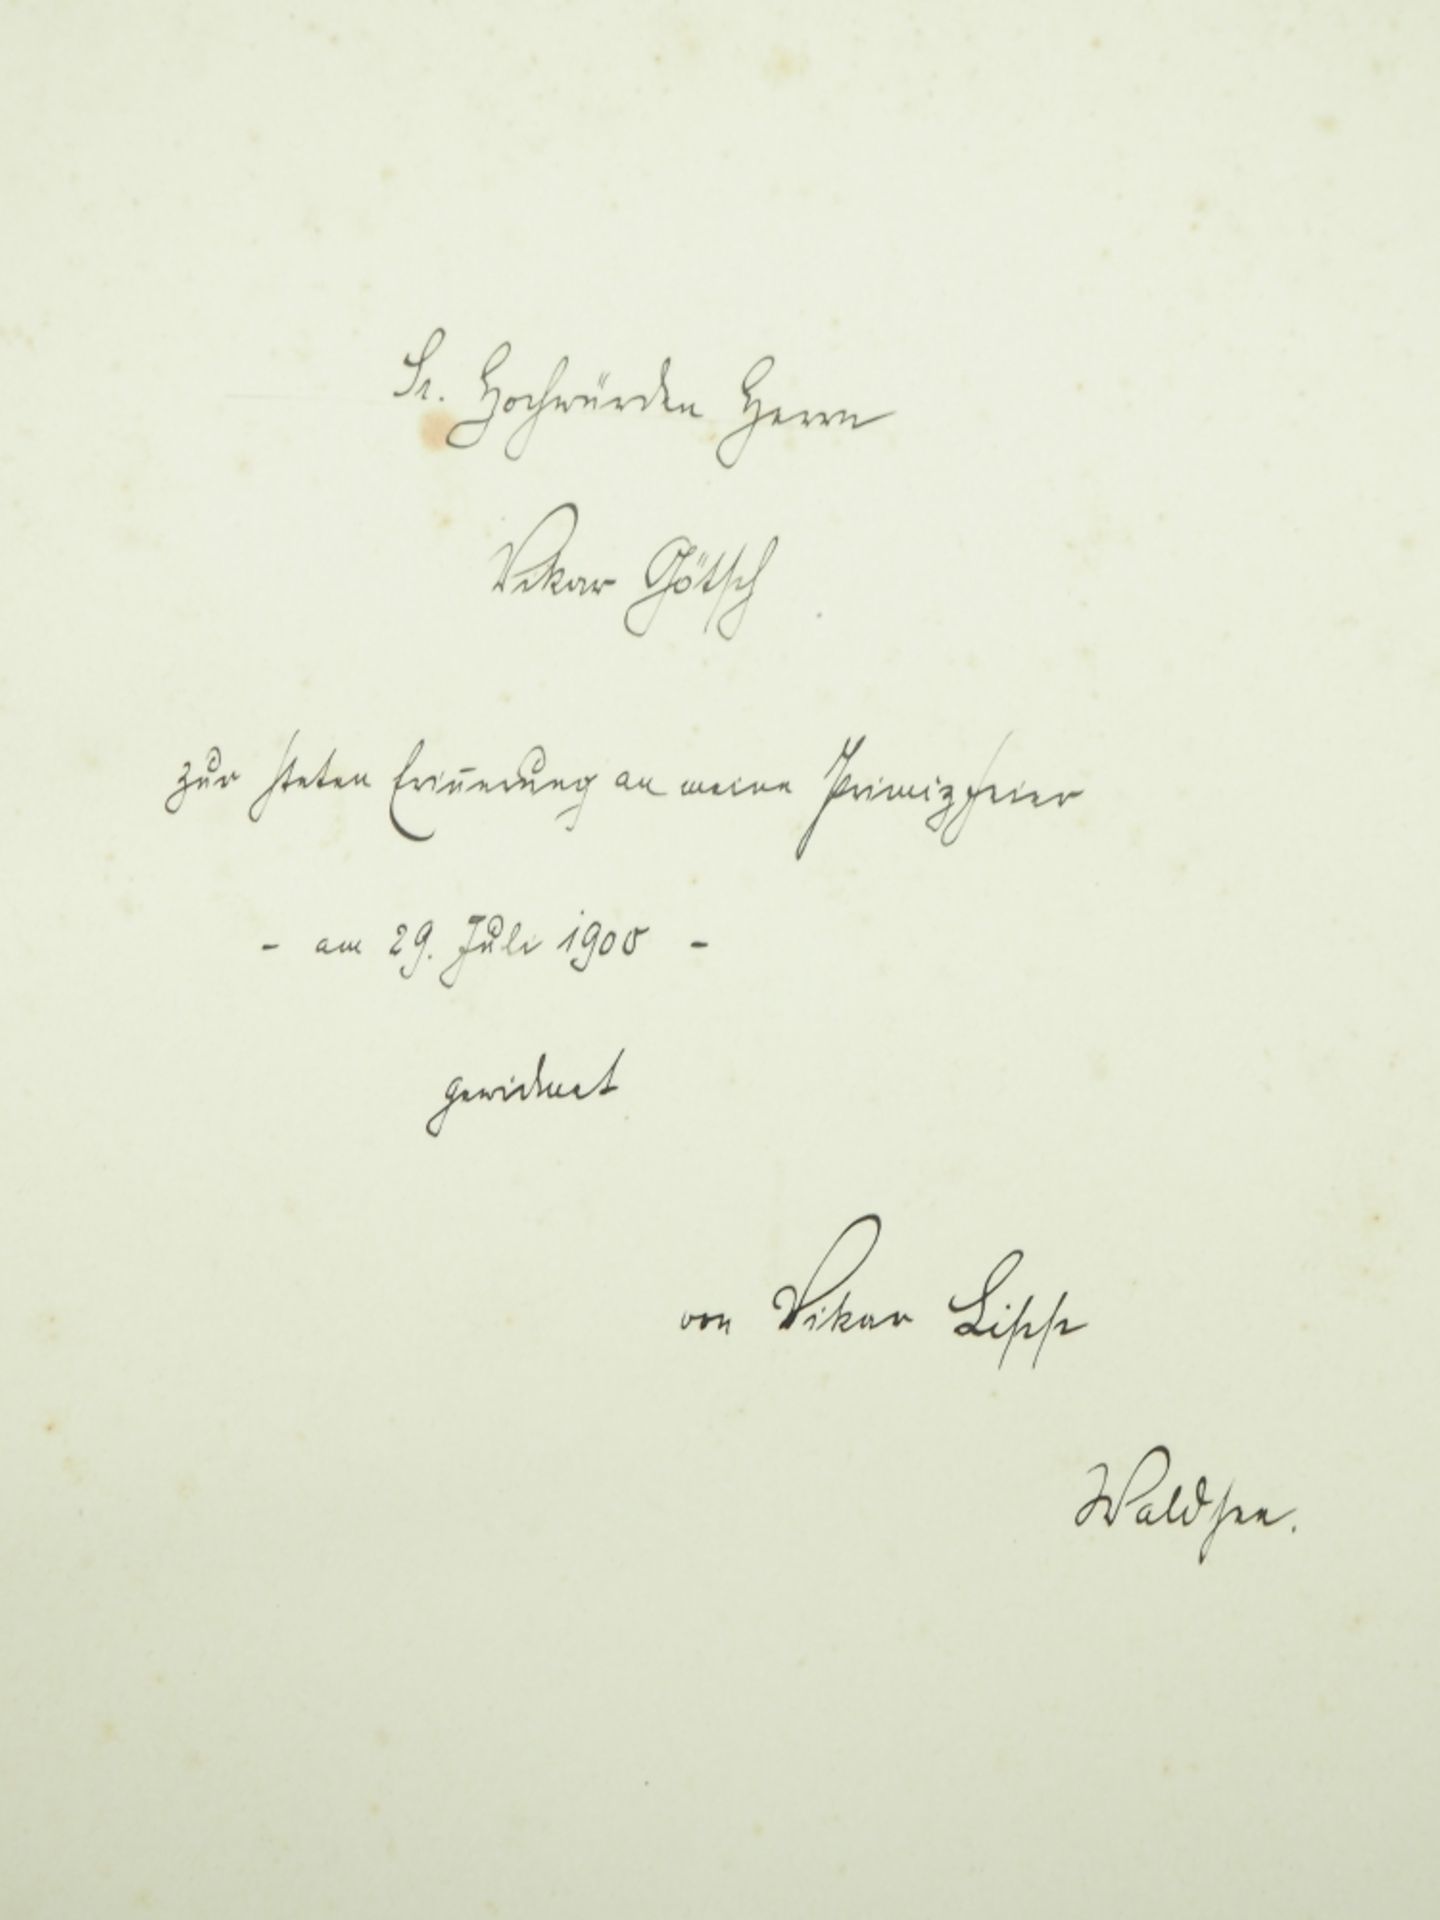 Sr. Hochwürden Herrn
Vikar Götsch
zur steten Erin̄erung an meine Primizfeier
- am 29. Juli 1900 -
gewidmet
von Vikar Lipp
Waldsee.